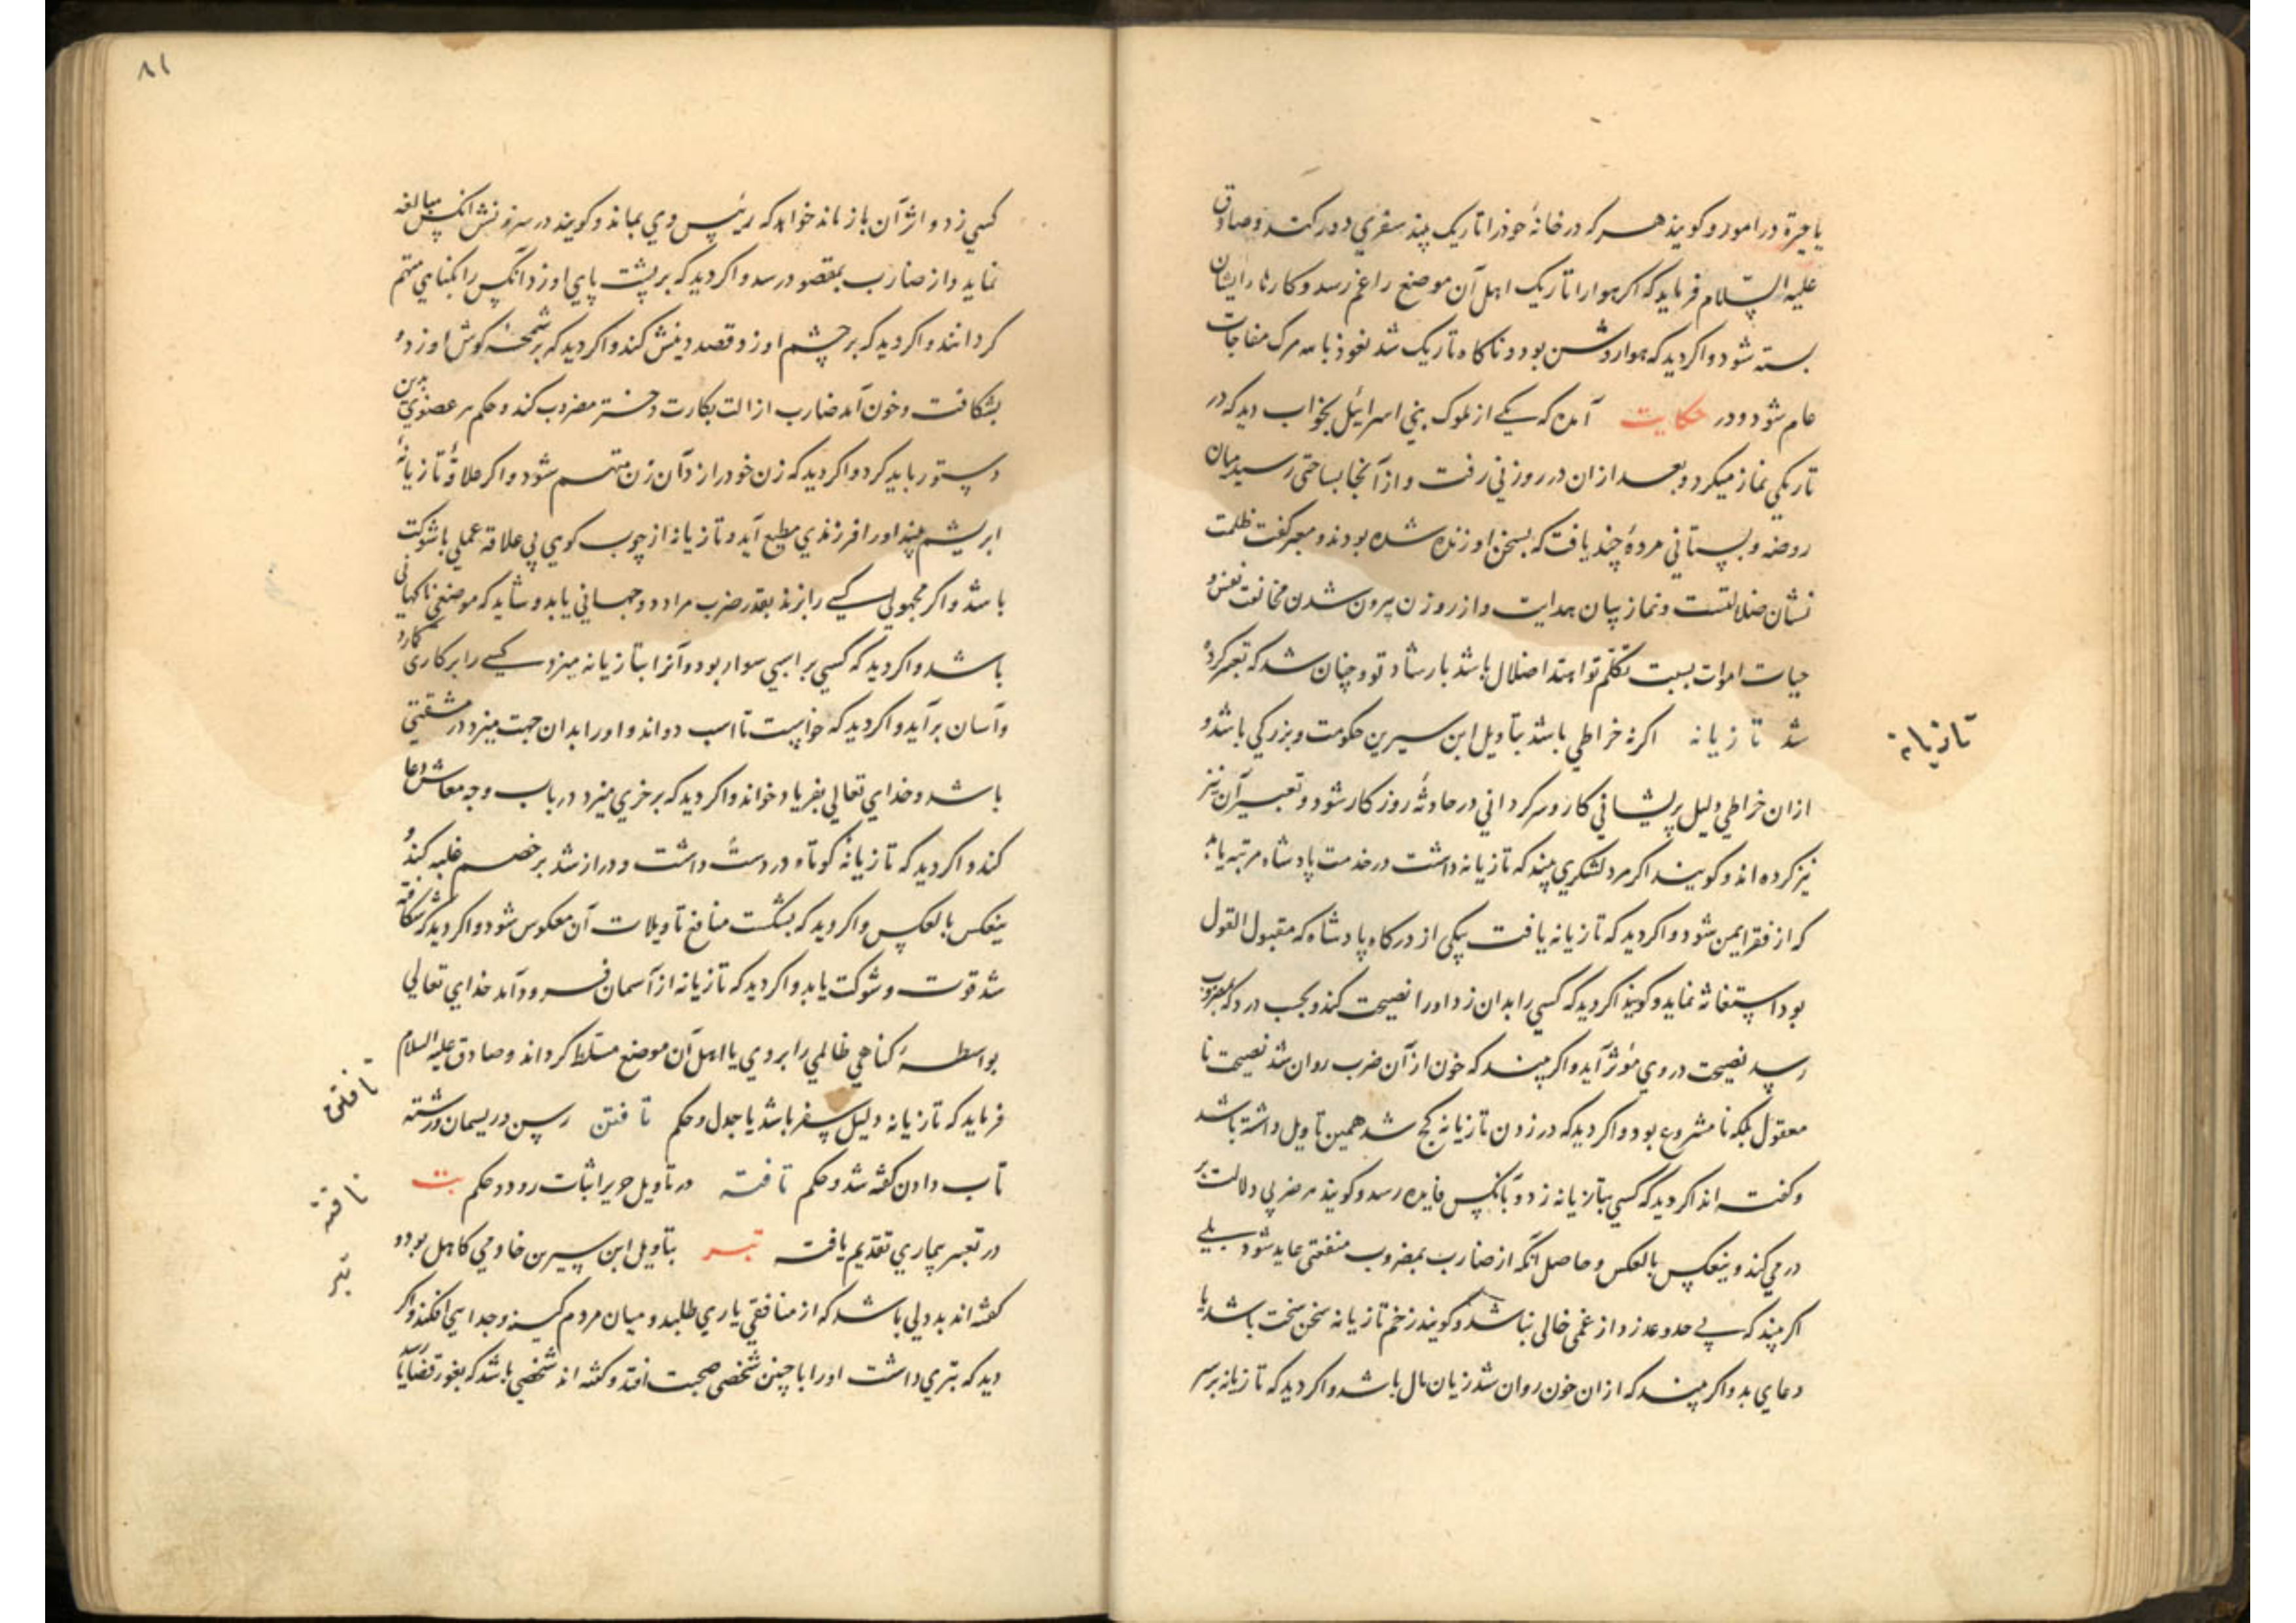 یا حیرة در امور و کویند هر که در خانهٔ خود را تاریک بیند سفری دور کند و صادق
علیه السّلام فرماید که اکر هوا را تاریک اهل آن موضع را غم رسد و کارها ایشان
بسته شود و اکر دید که هوا روشن بود و ناکاه تاریک شد نعوذ بالله مرک مفاجات
عام شود و در حکایت آمده که یکے از ملوک بنی اسرائیل بخواب دید که در
تاریکی نماز میکرد و بعد از ان در روزنی رفت و از آنجا بساحتی رسید میان
روضه و بستانی مردهٔ چند یافت که بسخن او زنده شده بودند و معبر کفت ظلمت
نشان ضلالتست و نماز بیان هدایت و از روزن بیرون شدن مخالفت نفس و
حیات اموات بسبب تکلم تو اهتداء ضلال باشد بارشاد تو و چنان شد که تعبیر کرده
شد تازیانه اکر نه خراطی باشد بتأویل ابن سیرین حکومت و بزرکی باشد و
ازان خراطی دلیل پریشانی کار و سرکردانی در حادثهٔ روزکار شود و تعبیر آن نیز
نیز کرده اند و کویند اکر مرد لشکری بیند که تازیانه داشت در خدمت پادشاه مرتبه یابد
که از فقر ایمن شود و اکر دید که تازیانه یافت بیکی از درکاه پادشاه که مقبول القول
بود استغاثه نماید و کویند اکر دید که کسی را بدان زد او را نصیحت کند و بحسب درد که بمضروب
رسد نصیحت در وی مؤثر آید و اکر بیند که خون از آن ضرب روان شد نصیحت نا
معقول بلکه نا مشروع بود و اکر دید که در زدن تازیانه کج شد همین تاویل داشته باشد
و کفته اند اکر دید که کسی بتازیانه زد و بانکس فایده رسد و کویند هر ضربی دلالت بر
درمی کند و ینعکس بالعکس و حاصل آنکه از ضارب بمضروب منفعتی عاید شود بلے
اکر بیند که بے حد و عد زد از غمی خالی نباشد و کویند زخم تازیانه سخن سخت باشد یا
دعای بد و اکر بیند که ازان خون روان شد زیان مال باشد و اکر دید که تازیانه بر سر
تازیانه
۸۱
کسی زد و اثر آن باز ماند خواهد که رئیس وی بماند و کویند در سرزنش انکس مبالغه
نماید و از ضارب بمقصود رسد و اکر دید که بر پشت پای او زد انکس را بکناهی متهم
کردانند و اکر دید که بر چشم او زد قصد دینش کند و اکر دید که بر شحمهٔ کوش او زد و
بشکافت و خون آمد ضارب ازالت بکارت دختر مضروب کند و حکم هر عضوی بدین
دستور باید کرد و اکر دید که زن خود را زد آن زن متهم شود و اکر علاقهٔ تازیانهٔ
ابریشم بیند او را فرزندی مطیع آید و تازیانه از چوب کوهی بی علاقه عملی باشوکت
باشد و اکر مجهولی کسے را بزند بقدر ضرب مراد دوجهانی یابد و شاید که موضعی ناکهانی
باشد و اکر دید که کسی بر اسبی سوار بود و آنرا بتازیانه میزد کسے را بر کاری کمارد
و آسان بر آید و اکر دید که خواست تا اسب دواند و او را بدان جهت میزد در مشقتی
باشد و خدای تعالی بفریاد خواند و اکر دید که بر خری میزد در باب وجه معاش دعا
کند و اکر دید که تازیانهٔ کوتاه در دست داشت و دراز شد بر خصم غلبه کند و
ینعکس بالعکس و اکر دید که بشکست منافع تاویلات آن معکوس شود و اکر دید که شکافته
شد قوت و شوکت یابد و اکر دید که تازیانه از آسمان فرود آمد خدای تعالی
بواسطهٔ کناهی ظالمی را بر وی یا اهل آن موضع مسلط کرداند و صادق علیه السلام
فرماید که تازیانه دلیل سفر باشد یا جدل و حکم تافتن رسن و ریسمان و رشته
تاب دادن کفته شد و حکم تافته در تاویل حریر اثبات رود و حکم تب
در تعبیر بیماری تقدیم یافت تبر بتأویل ابن سیرین خادمی کاهل بود و
کفته اند بددلی باشد که از منافقی یاری طلبد و میان مردم کینه و جدایی افکند و اکر
دید که تبری داشت او را با چنین شخصی صحبت افتد و کفته اند شخصی باشد که بغور قضایا رسد
تافتن
تافته
تبر